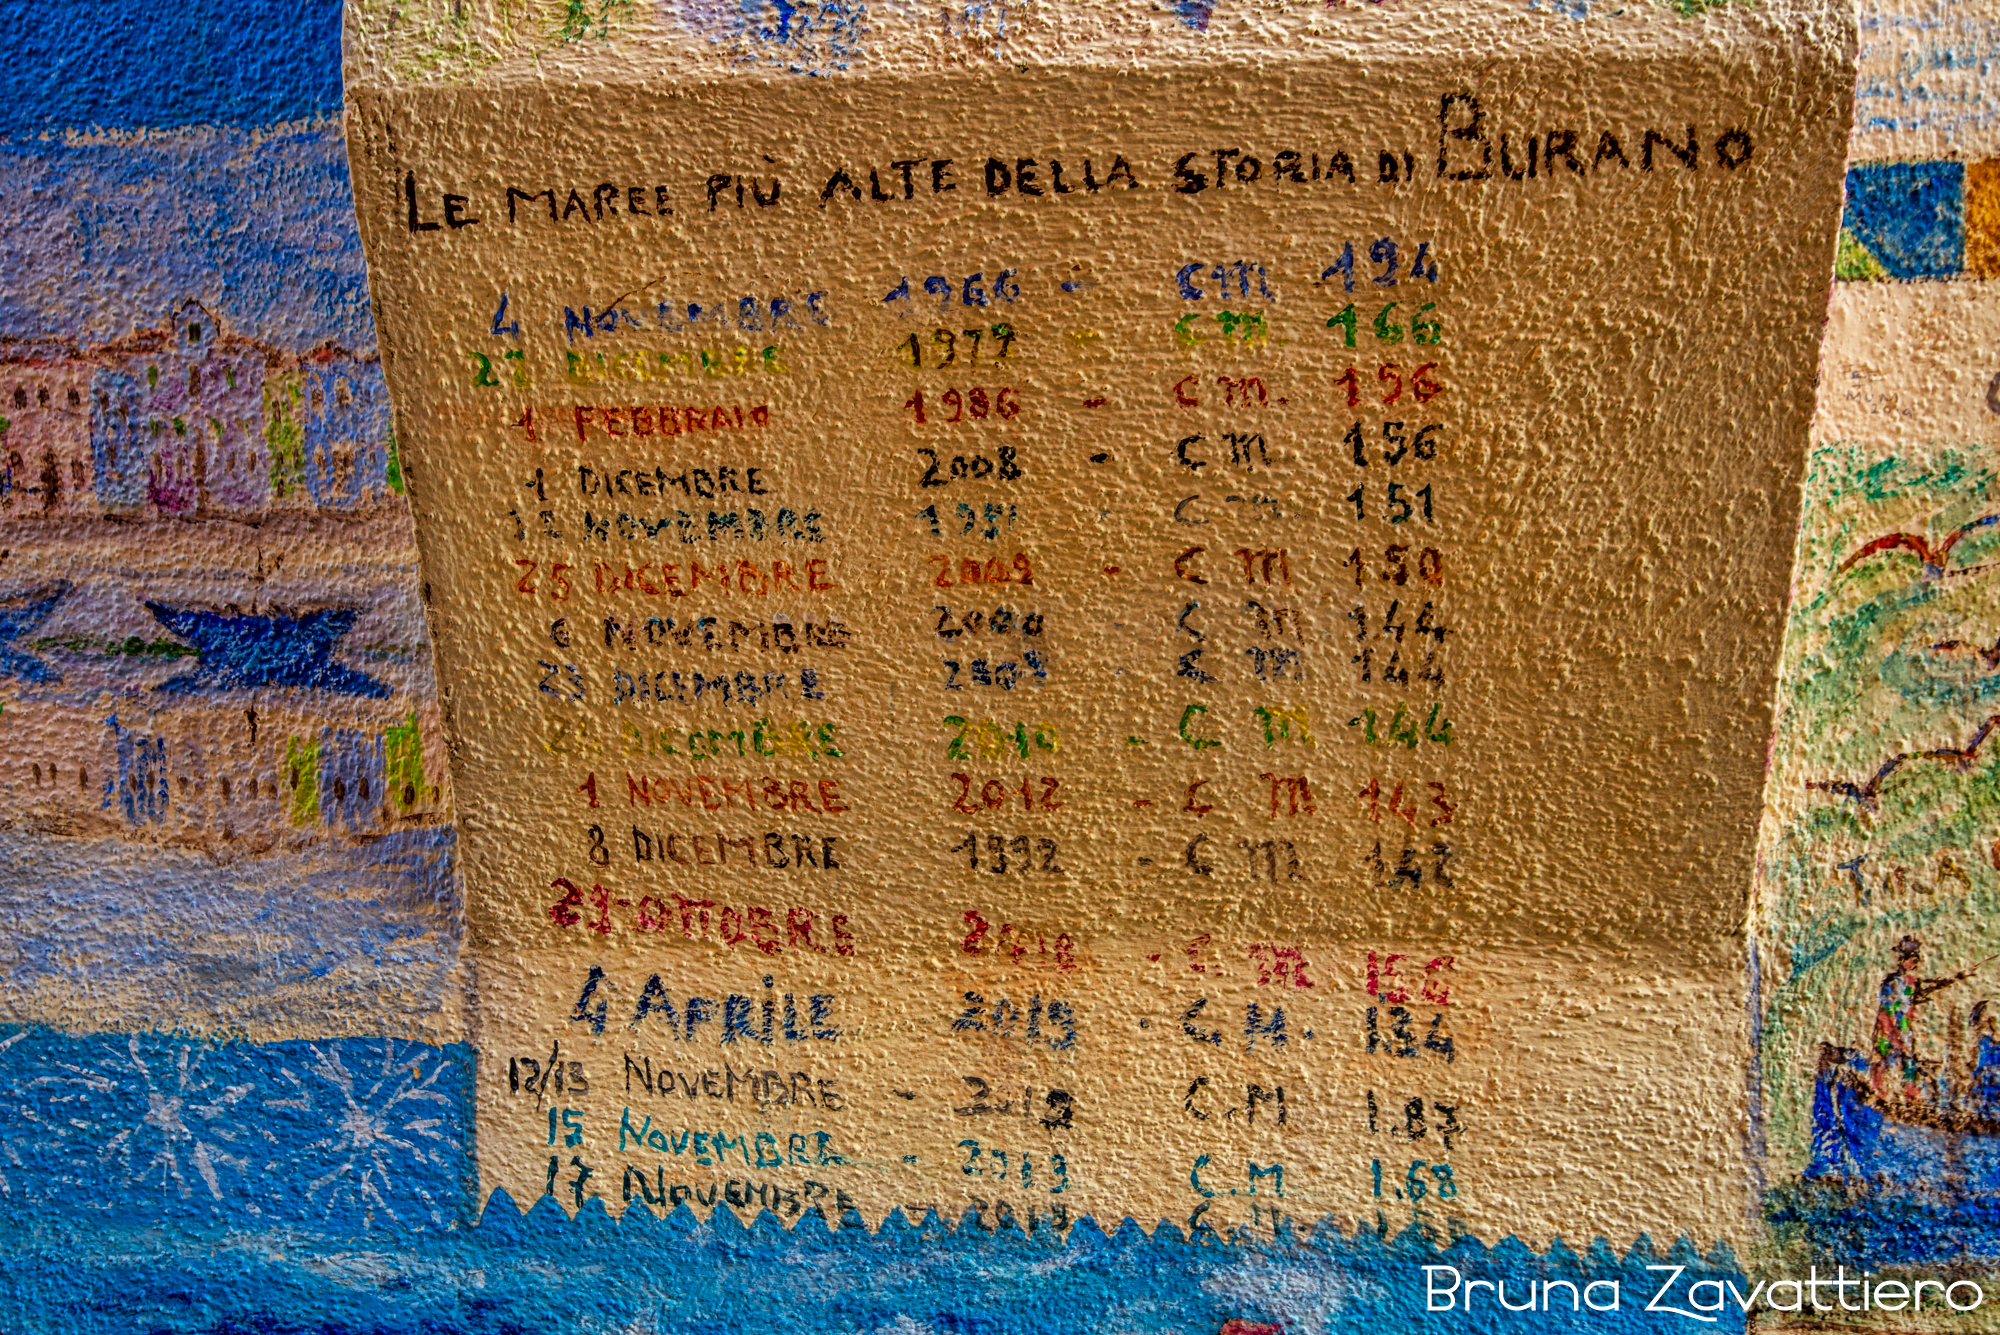 LE MAREE PIÙ ALTE DELLA STORIA DI BURANO
4 NOVEMBRE 1966 - CM 194
22 DICEMBRE 1979 - CM. 166
1 FEBBRAIO 1986 - CM. 156
1 DICEMBRE 2008 - CM 156
12 NOVEMBRE 1951 - CM. 151
25 DICEMBRE 2009 - CM 150
6 NOVEMBRE 2000 - CM 144
23 DICEMBRE 2009 - CM 144
DICEMBRE 2010 - CM 144
1 NOVEMBRE 2012 - CM 143
8 DICEMBRE 1992 - CM 142
29-OTTOBRE 2018 - CM 156
4 APRILE 2019 - C.M. 134
12/13 NOVEMBRE - 2019 C.M 1.87
15 NOVEMBRE - 2019 C.M 1.68
17 NOVEMBRE - 2019 C.M.
Bruna Zavattiero